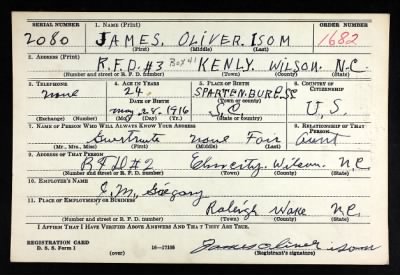 SERIAL NUMBER 1. NAME (Print) ORDER NUMBER
2080 JAMES. OLIVER. ISOM 1682
(First) (Middle) (Last)
2. ADDRESS (Print)
R.F.D. #3 Box 41 KENLY. WILSON. N.C.
(Number and street or R. F. D. number) (Town) (County) (State)
3. TELEPHONE 4. AGE IN YEARS 5. PLACE OF BIRTH 6. COUNTRY OF CITIZENSHIP
none 24
DATE OF BIRTH (Town or county)
may 28. 1916 S.C. U.S.
(Exchange) (Number) (Mo.) (Day) (Yr.) (State or country)
7. NAME OF PERSON WHO WILL ALWAYS KNOW YOUR ADDRESS 8. RELATIONSHIP OF THAT PERSON
none Aunt
(Mr., Mrs., Miss) (First) (Middle) (Last)
9. ADDRESS OF THAT PERSON
RFD #2 Elm city. Wilson. N.C.
(Number and street or R. F. D. number) (Town) (County) (State)
10. EMPLOYER'S NAME
Gregory
11. PLACE OF EMPLOYMENT OR BUSINESS
Raleigh Wake N.C.
(Number and street or R. F. D. number) (Town) (County) (State)
I AFFIRM THAT I HAVE VERIFIED ABOVE ANSWERS AND THAT THEY ARE TRUE.
REGISTRATION CARD
D. S. S. Form 1 (over) 16—17105 James Oliver isom
(Registrant's signature)